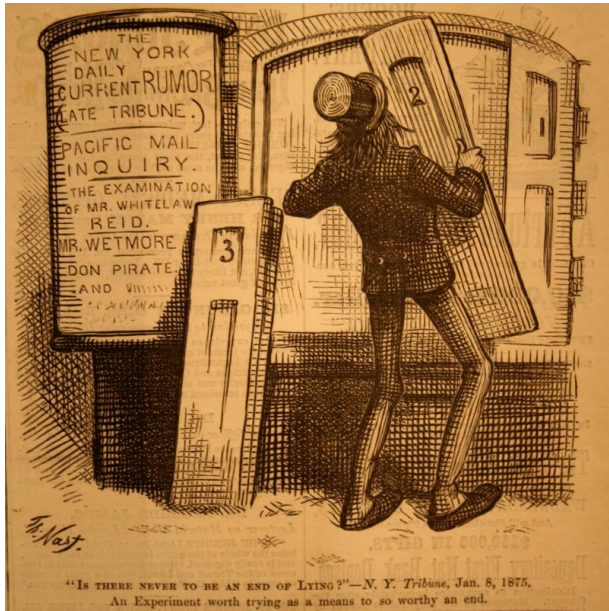 THE
NEW YORK
DAILY
CURRENT RUMOR
(LATE TRIBUNE.)
PACIFIC MAIL
INQUIRY.
THE EXAMINATION
OF MR. WHITELAW
REID.
MR. WETMORE
DON PIRATE.
AND
3
2
1
Th. Nast.
"IS THERE NEVER TO BE AN END OF LYING?"—N. Y. Tribune, Jan. 8, 1875.
An Experiment worth trying as a means to so worthy an end.